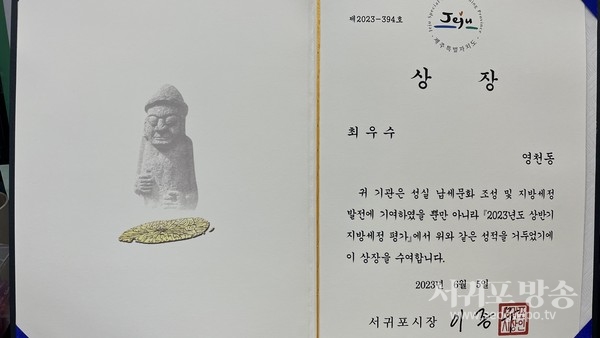 제2023-394호
Jeju
제주특별자치도
상 장
최우수
영천동
위 기관은 성실 납세문화 조성 및 지방세정
발전에 기여하였을 뿐만 아니라 『2023년도 상반기
지방세정 평가』에서 위와 같은 성적을 거두었기에
이 상장을 수여합니다.
2023년 6월 5일
서귀포시장 이종
서귀포방송